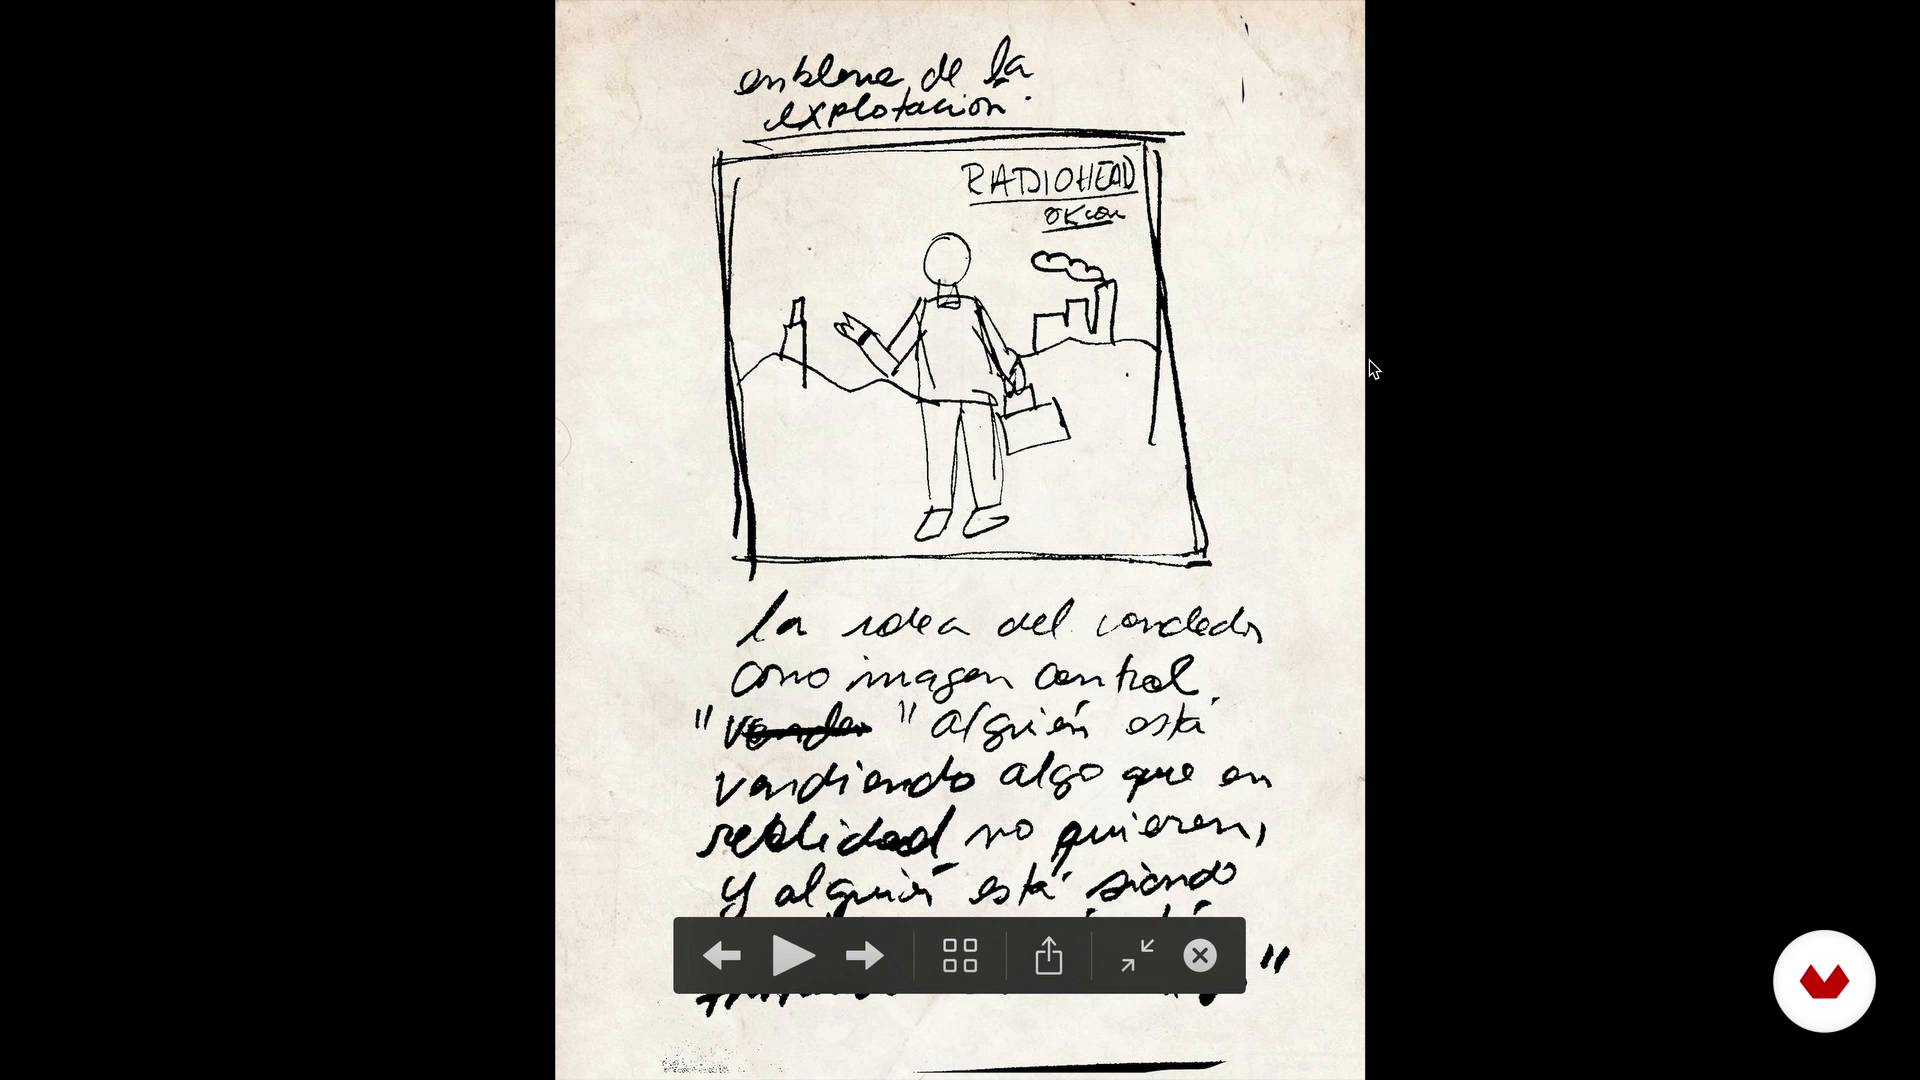 emblema de la
explotación.
RADIOHEAD
OK com
la idea del vendedor
como imagen central.
"vender" alguién está
vendiendo algo que en
realidad no quieren,
y alguién está siendo
"